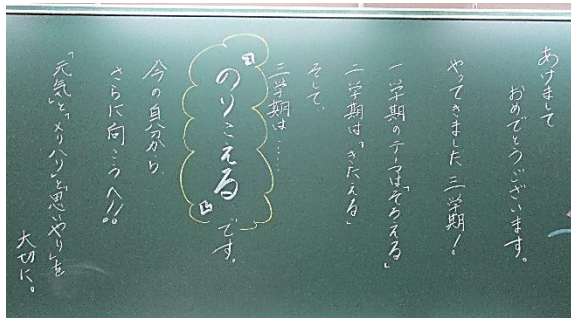 あけまして
おめでとうございます。
やってきました三学期!
一学期のテーマは「そろえる」
二学期は「きたえる」
そして、
三学期は……
『のりこえる』です。
今の自分から
さらに向こうへ!!
「元気」と「メリハリ」と「思いやり」を
大切に。